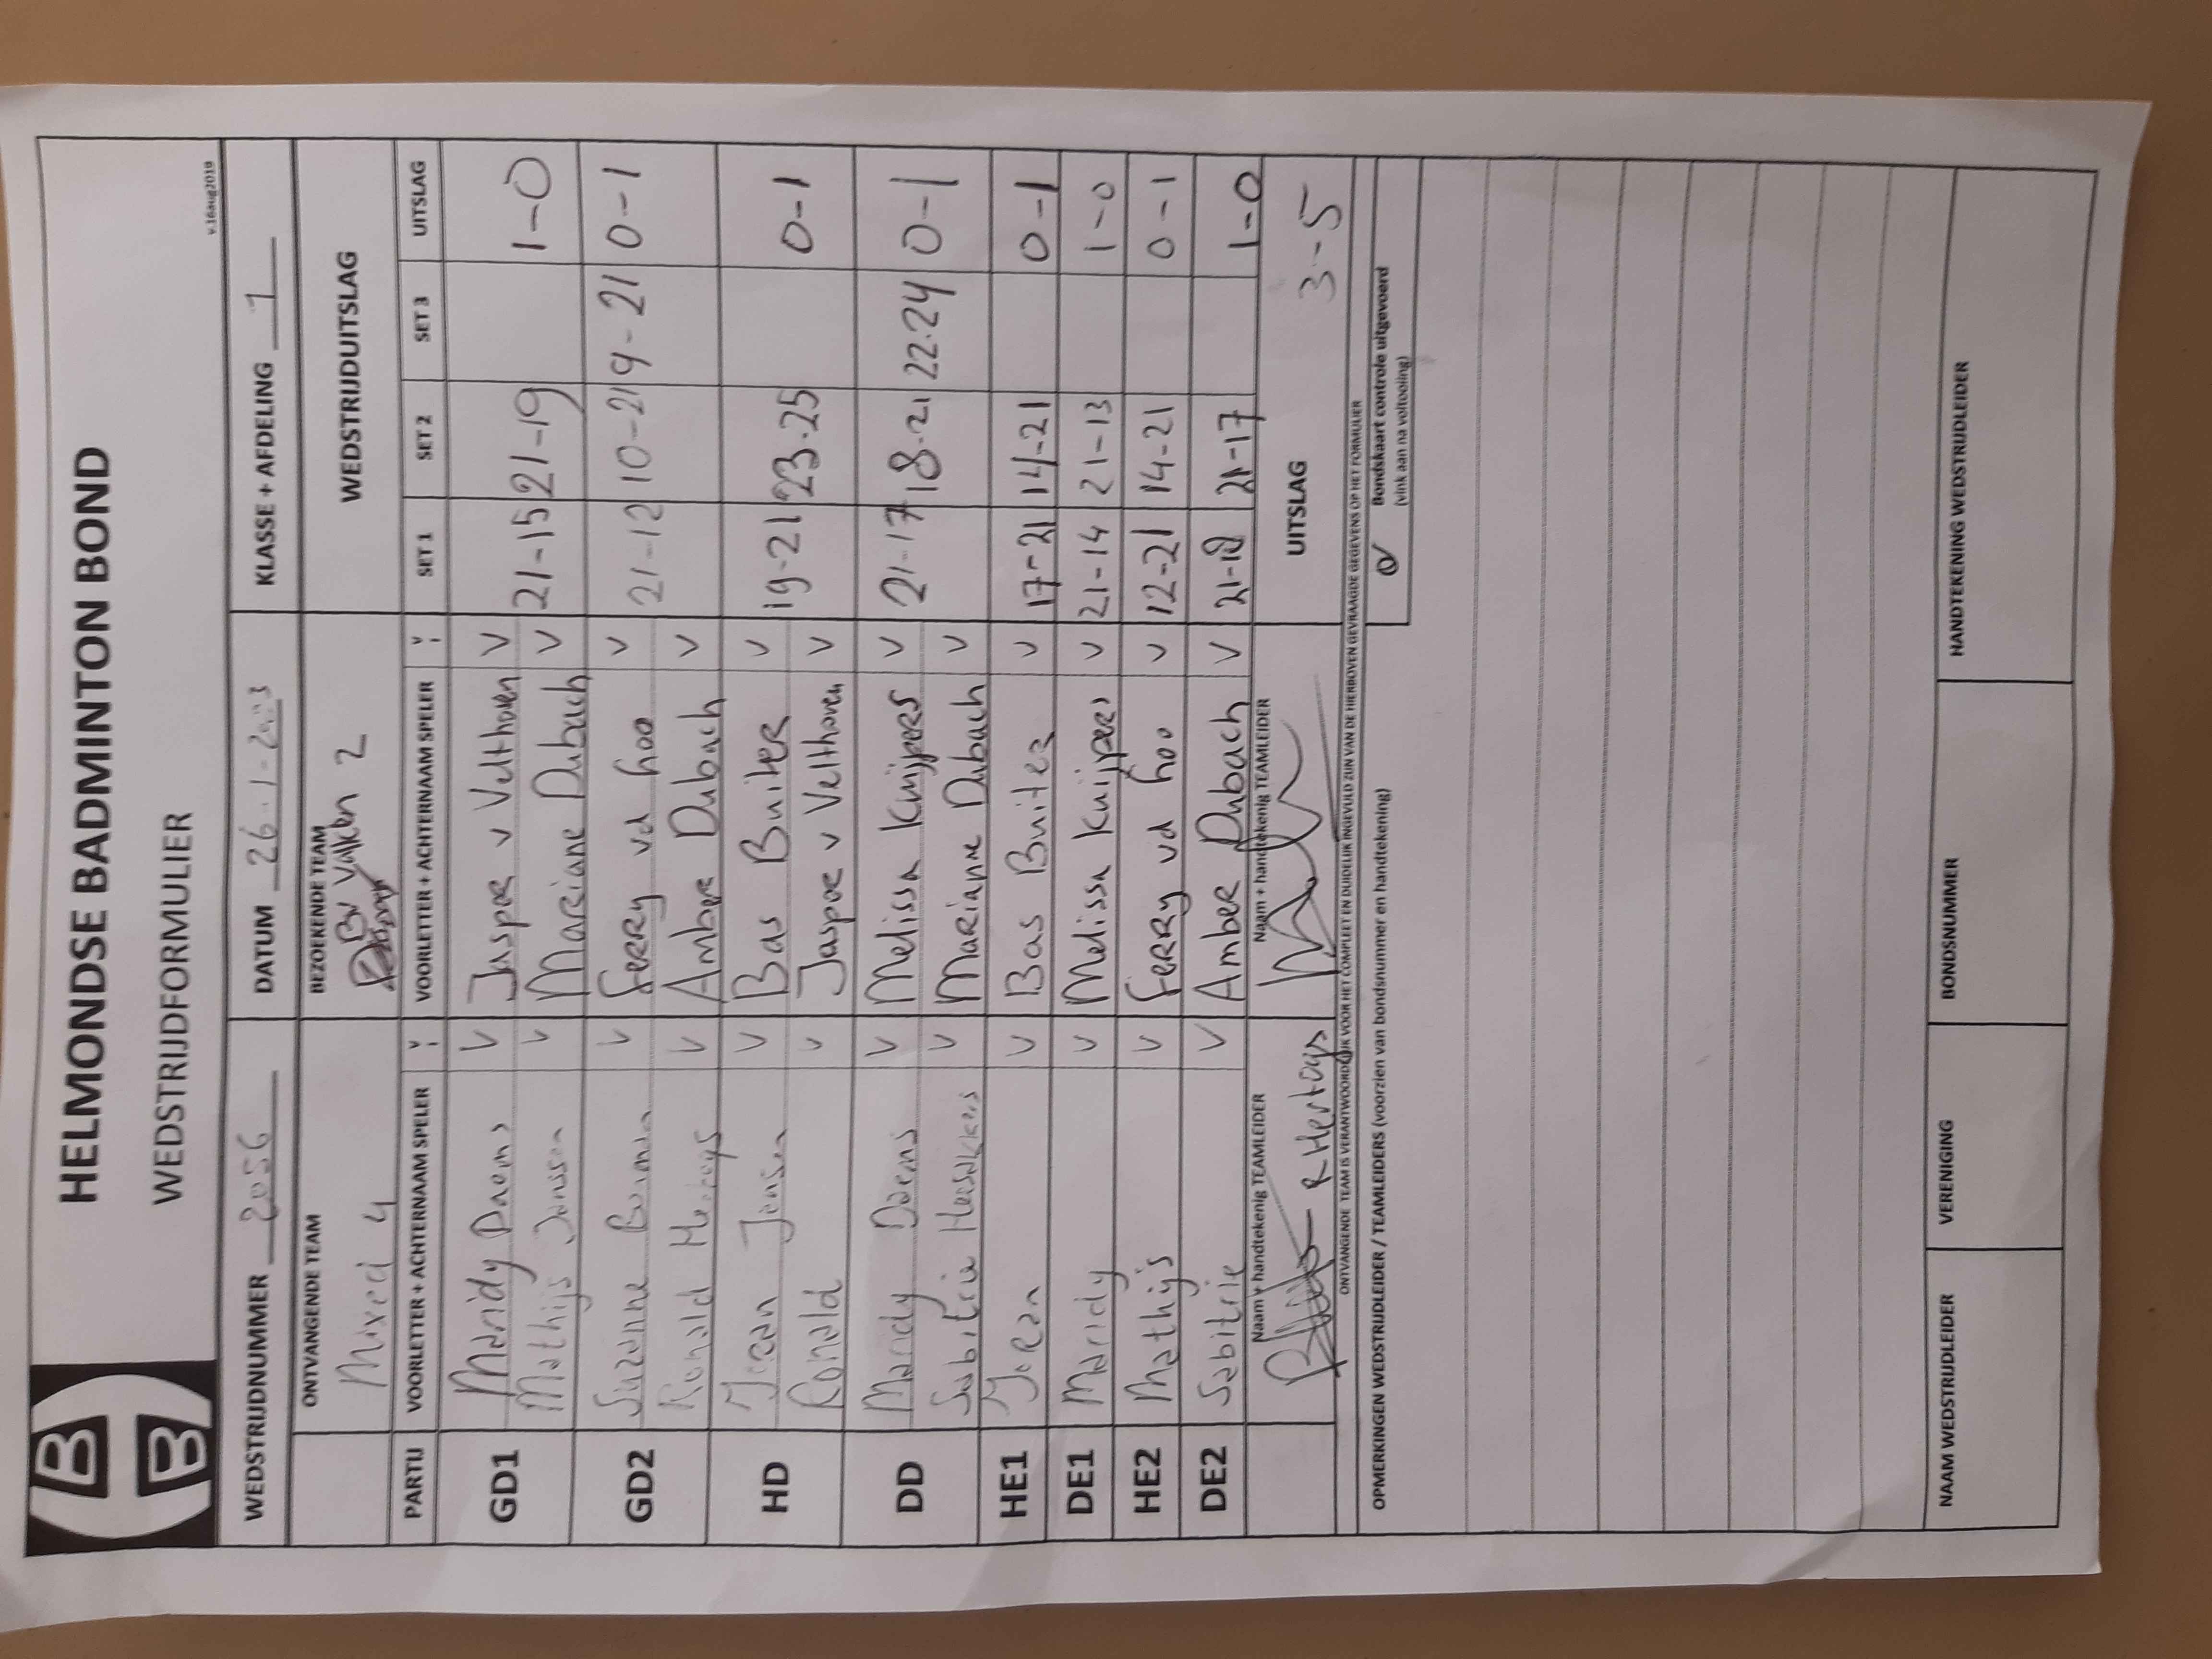 HELMONDSE BADMINTON BOND
WEDSTRIJDFORMULIER
v.16aug2019
WEDSTRIJDNUMMER 2056 DATUM 26-1-2023 KLASSE + AFDELING 1
ONTVANGENDE TEAM BEZOEKENDE TEAM WEDSTRIJDUITSLAG
Mixed 4 BV Valken 2
PARTIJ VOORLETTER + ACHTERNAAM SPELER V VOORLETTER + ACHTERNAAM SPELER V SET 1 SET 2 SET 3 UITSLAG
GD1 Mandy Daems V Jasper v Velthoven V 21-15 21-19 1-0
Mathijs Jansen V Mariane Dubach V
GD2 Suzanne V Ferry vd hoo V 21-12 10-21 19-21 0-1
Ronald Hertogs V Amber Dubach V
HD Joran Jansen V Bas Buiter V 19-21 23-25 0-1
Ronald V Jasper v Velthoven V
DD Mandy Daems V Melissa Kuijpers V 21-17 18-21 22-24 0-1
Sabitrie Heesakkers V Marianne Dubach V
HE1 Joran V Bas Buiter V 17-21 14-21 0-1
DE1 Mandy V Melissa Kuijpers V 21-14 21-13 1-0
HE2 Mathijs V Ferry vd hoo V 12-21 14-21 0-1
DE2 Sabitrie V Amber Dubach V 21-18 21-17 1-0
Naam + handtekenig TEAMLEIDER Naam + handtekenig TEAMLEIDER UITSLAG 3-5
R Hertogs
ONTVANGENDE TEAM IS VERANTWOORDELIJK VOOR HET COMPLEET EN DUIDELIJK INGEVULD ZIJN VAN DE HIERBOVEN GEVRAAGDE GEGEVENS OP HET FORMULIER
Bondskaart controle uitgevoerd
(vink aan na voltooiing)
OPMERKINGEN WEDSTRIJDLEIDER / TEAMLEIDERS (voorzien van bondsnummer en handtekening)
NAAM WEDSTRIJDLEIDER VERENIGING BONDSNUMMER HANDTEKENING WEDSTRIJDLEIDER